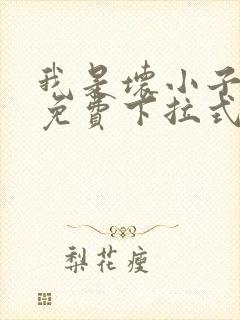 我是壞小子
免費下拉式
梨花瘦